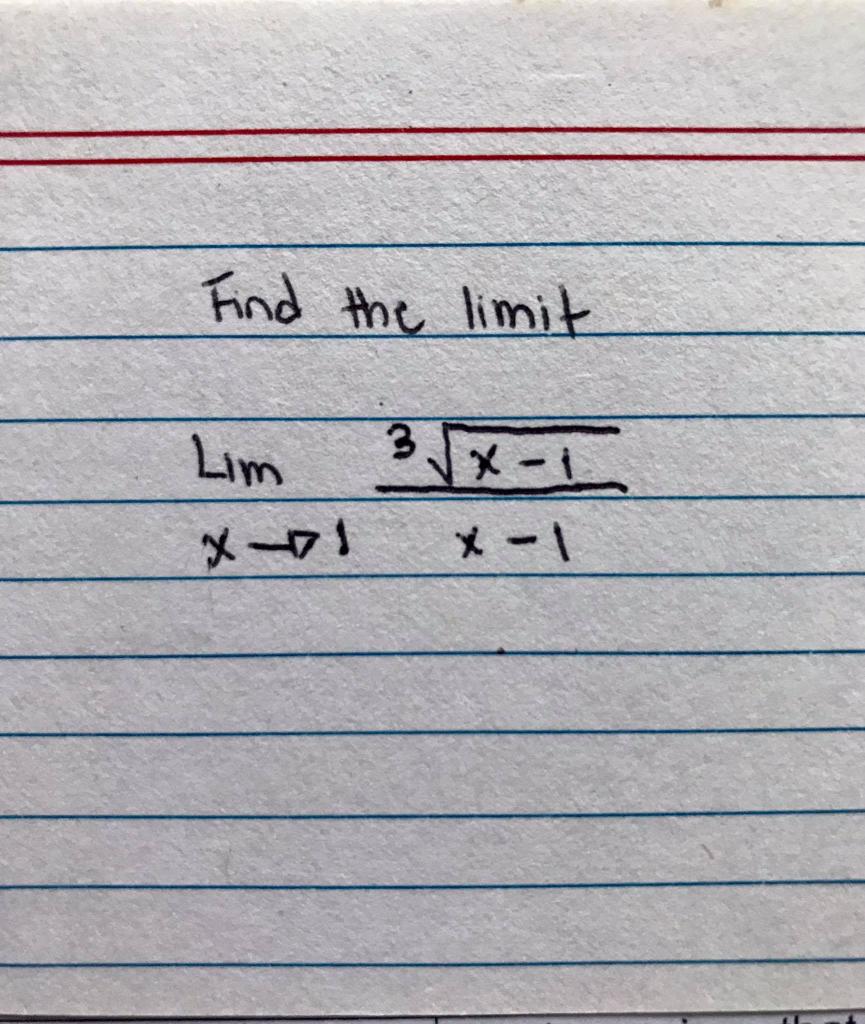 Find the limit
Lim ³√(x - 1)
x → 1 x - 1